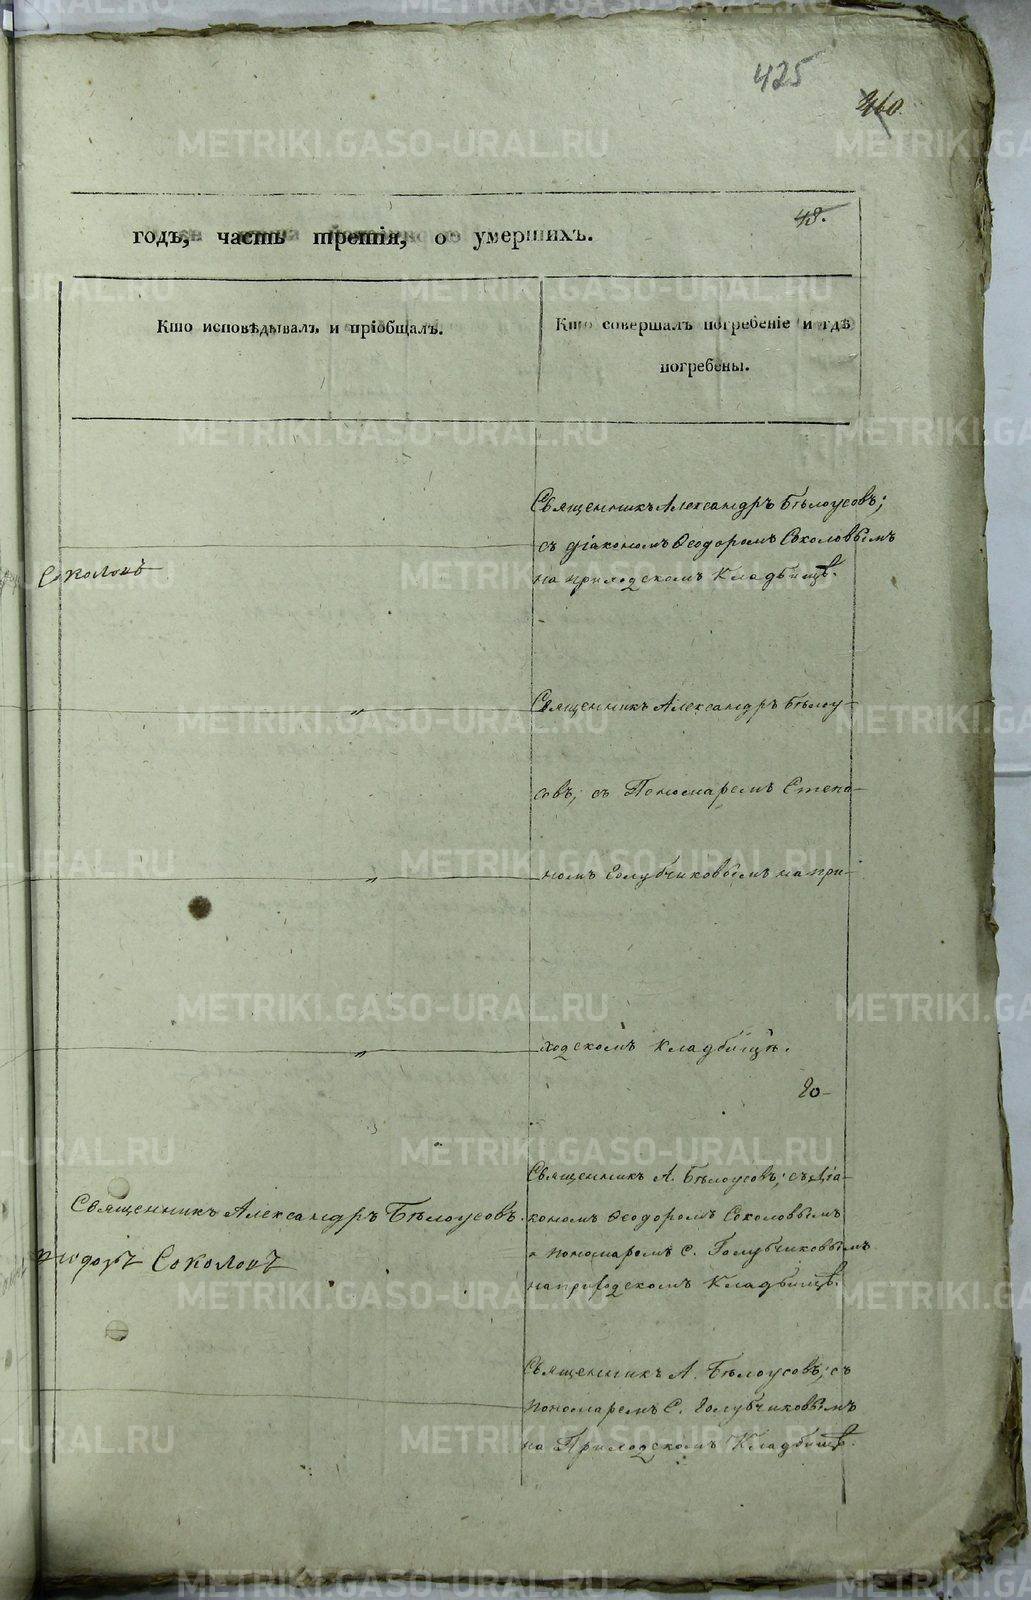 425
460.
48.
годъ, часть третія, о умершихъ.
Кто исповѣдывалъ и пріобщалъ.
Кто совершалъ погребеніе и гдѣ
погребены.
Священникъ Александръ Бѣлоусовъ;
съ діакономъ Ѳеодоромъ Соколовымъ
на приходскомъ Кладбищѣ.
Соколовъ
Священникъ Александръ Бѣлоу-
совъ, съ Пономаремъ Степа-
номъ Голубчиковымъ на при-
ходскомъ Кладбищѣ.
Священникъ Александръ Бѣлоусовъ.
Соколовъ
Священникъ А. Бѣлоусовъ; съ Діа-
кономъ Ѳеодоромъ Соколовымъ
и пономаремъ С. Голубчиковымъ
на приходскомъ Кладбищѣ.
Священникъ А. Бѣлоусовъ; съ
пономаремъ С. Голубчиковымъ
на Приходскомъ Кладбищѣ.
METRIKI.GASO-URAL.RU